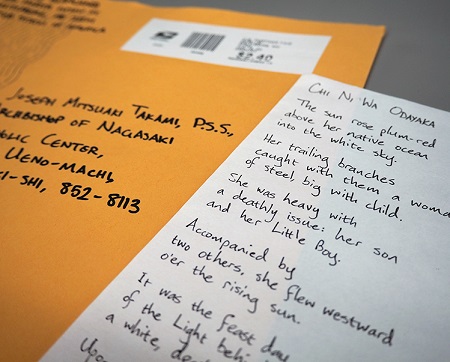 $2.40
Joseph Mitsuaki Takami, P.S.S.,
Archbishop of Nagasaki
Center,
Ueno-machi,
-shi, 852-8113
Chi Ni Wa Odayaka
The sun rose plum-red
above her native ocean
into the white sky.
Her trailing branches
caught with them a woma
of steel, big with child.
She was heavy with
a deathly issue: her son
and her Little Boy.
Accompanied by
two others, she flew westward
o'er the rising sun.
It was the feast day
of the Light behi
a white, dea
Upo